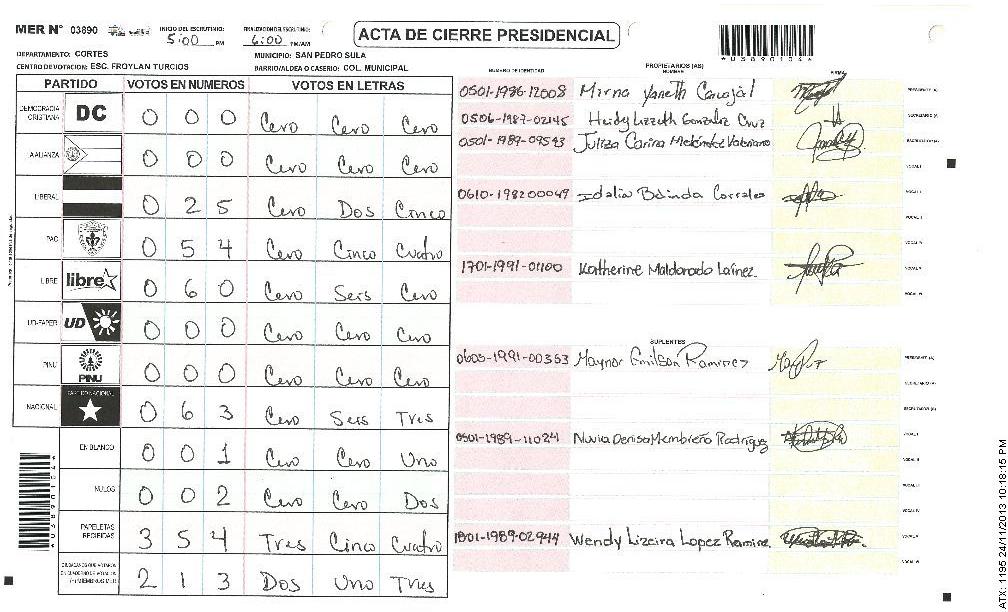 MER N° 03890 INICIO DEL ESCRUTINIO: 5:00 PM FINALIZACION DEL ESCRUTINIO: 6:00 PM/AM
ACTA DE CIERRE PRESIDENCIAL
*U3890104*
DEPARTAMENTO: CORTES MUNICIPIO: SAN PEDRO SULA
CENTRO DE VOTACION: ESC. FROYLAN TURCIOS BARRIO/ALDEA O CASERIO: COL. MUNICIPAL
PARTIDO VOTOS EN NUMEROS VOTOS EN LETRAS
DEMOCRACIA CRISTIANA DC 0 0 0 Cero Cero Cero
ALIANZA 0 0 0 Cero Cero Cero
LIBERAL 0 2 5 Cero Dos Cinco
PAC 0 5 4 Cero Cinco Cuatro
LIBRE libre 0 6 0 Cero Seis Cero
UD-FAPER UD 0 0 0 Cero Cero Cero
PINU PINU 0 0 0 Cero Cero Cero
NACIONAL PARTIDO NACIONAL 0 6 3 Cero Seis Tres
EN BLANCO 0 0 1 Cero Cero Uno
NULOS 0 0 2 Cero Cero Dos
PAPELETAS RECIBIDAS 3 5 4 Tres Cinco Cuatro
CIUDADANOS QUE VOTARON EN CUADERNO DE VOTACION (+) MIEMBROS MER 2 1 3 Dos Uno Tres
*U3890104*
NUMERO DE IDENTIDAD PROPIETARIOS (AS) NOMBRE FIRMA
0501-1986-12008 Mirna Yaneth Carvajal PRESIDENTE (A)
0506-1987-02145 Heidy Lizzeth Gonzalez Cruz SECRETARIO (A)
0501-1989-09593 Juliza Carina Meléndez Valeriano ESCRUTADOR (A)
VOCAL I
0610-198200049 Idalia Belinda Corrales
1701-1991-01100 Katherine Maldonado Laínez
SUPLENTES
0605-1991-00353 Maynor Emilson Ramirez PRESIDENTE (A)
SECRETARIO (A)
ESCRUTADOR (A)
0501-1989-11024 Nuvia Denisa Membreño Rodriguez
1801-1989-02944 Wendy Lizeira Lopez Ramirez
ATX: 1195 24/11/2013 10:18:15 PM